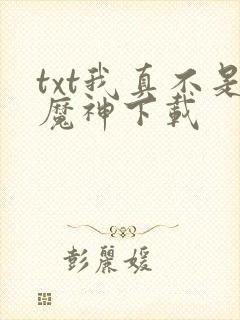 txt我真不是
魔神下载
彭丽媛